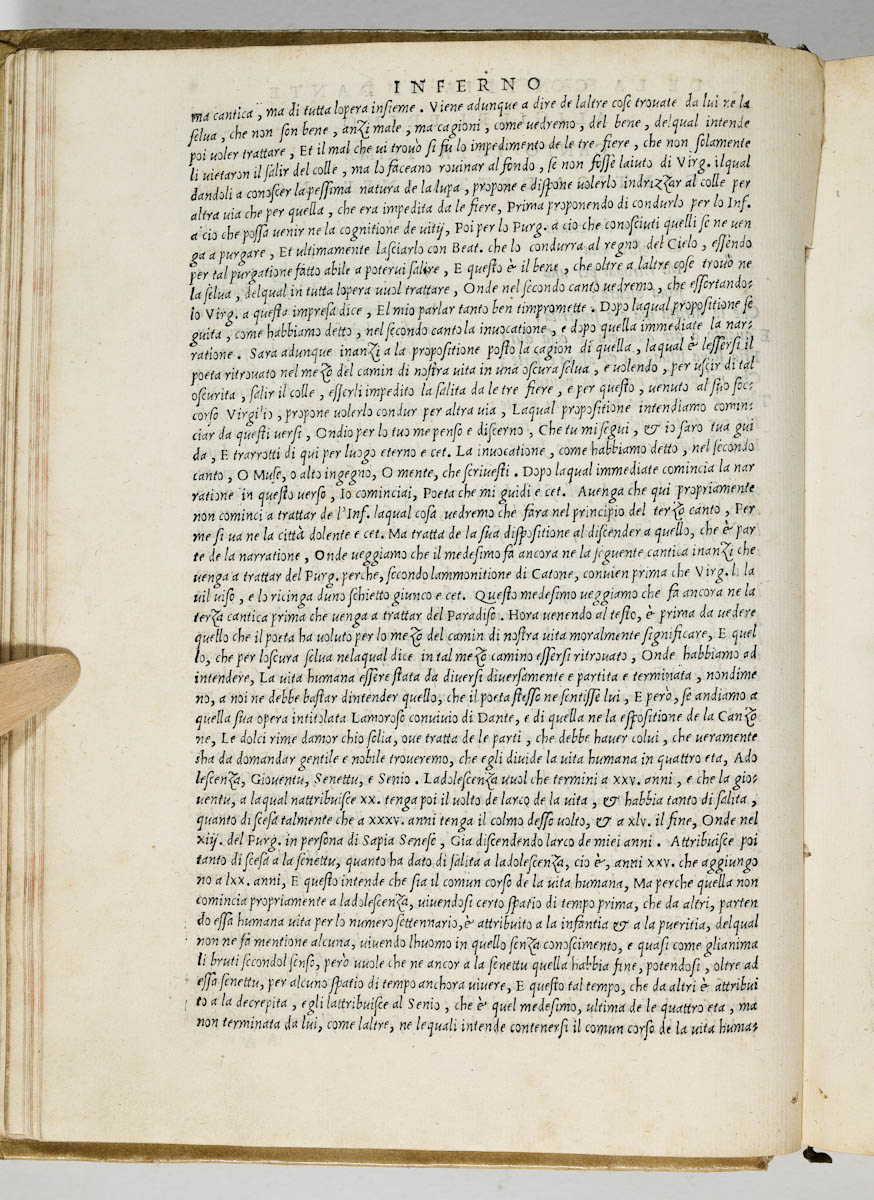 INFERNO
ma cantica, ma di tutta lopera insieme. Viene adunque a dire de laltre cose trouate da lui ne la
selua, che non son bene, anzi male, ma cagioni, come uedremo, del bene, delqual intende
poi uoler trattare, Et il mal che ui trouò si fù lo impedimento de le tre fiere, che non solamente
li uietaron il salir del colle, ma lo faceano rouinar al fondo, se non fosse laiuto di Virg. ilqual
dandoli a conoscer la pessima natura de la lupa, propone e dispone uolerlo indrizzar al colle per
altra uia che per quella, che era impedita da le fiere, Prima proponendo di condurlo per lo Inf.
a cio che possa venir ne la cognitione de uitij, Poi per lo Purg. a cio che conosciuti quelli se ne uen
ga a purgare, Et ultimamente lasciarlo con Beat. che lo condurra al regno del Cielo, essendo
per tal purgatione fatto abile a poterui salire, E questo è il bene, che oltre a laltre cose trouò ne
la selua, delqual in tutta lopera uuol trattare, Onde nel secondo canto uedremo, che essortando-
lo Virg. a questa impresa dice, El mio parlar tanto ben timpromette. Dopo laqual propositione se
guita, come habbiamo detto, nel secondo canto la inuocatione, e dopo quella immediate la nar-
ratione. Sara adunque inanzi a la propositione posto la cagion di quella, laqual è lessersi il
poeta ritrouato nel mezo del camin di nostra vita in una oscura selua, e uolendo, per uscir di tal
oscurita, salir il colle, esserli impedito la salita da le tre fiere, e per questo, venuto al suo soc-
corso Virgilio, propone uolerlo condur per altra uia, Laqual propositione intendiamo comin-
ciar da questi uersi, Ondio per lo tuo me penso e discerno, Che tu mi segui, & io saro tua gui
da, E trarrotti di qui per luogo eterno e cet. La inuocatione, come habbiamo detto, nel secondo
canto, O Muse, o alto ingegno, O mente, che scriuesti. Dopo laqual immediate comincia la nar
ratione in questo verso, Io cominciai, Poeta che mi guidi e cet. Auenga che qui propriamente
non cominci a trattar de l'Inf. laqual cosa uedremo che farà nel principio del terzo canto, Per
me si ua ne la città dolente e cet. Ma tratta de la sua dispositione al discender a quello, che è par
te de la narratione, Onde ueggiamo che il medesimo fa ancora ne la seguente cantica inanzi che
uenga a trattar del Purg. perche, secondo lammonitione di Catone, conuien prima che Virg. li la
ui il uiso, e lo ricinga duno schietto giunco e cet. Questo medesimo ueggiamo che fà ancora ne la
terza cantica prima che uenga a trattar del Paradiso. Hora uenendo al testo, è prima da vedere
quello che il poeta ha voluto per lo mezo del camin di nostra uita moralmente significare, E quel
lo, che per loscura selua nelaqual dice in tal mezo camino essersi ritrouato, Onde habbiamo ad
intendere, La vita humana essere stata da diuersi diuersamente e partita e terminata, nondime
no, a noi ne debbe bastar dintender quello, che il poeta stesso ne sentisse lui, E però, se andiamo a
quella sua opera intitolata Lamoroso conuiuio di Dante, e di quella ne la espositione de la Canzo
ne, Le dolci rime damor chio solia, oue tratta de le parti, che debbe hauer colui, che ueramente
sha da domandar gentile e nobile troueremo, che egli diuide la uita humana in quattro eta, Ado
lescenza, Giouentu, Senettu, e Senio. Ladolescenza uuol che termini a xxv. anni, e che la gio-
uentu, a laqual nattribuisce xx. tenga poi il uolto de larco de la vita, & habbia tanto di salita,
quanto di scesa talmente che a xxxv. anni tenga il colmo desso uolto, & a xlv. il fine, Onde nel
xiij. del Purg. in persona di Sapia Senese, Gia discendendo larco de miei anni. Attribuisce poi
tanto di scesa a la senettu, quanto ha dato di salita a ladolescenza, cio è, anni xxv. che aggiungo
no a lxx. anni, E questo intende che sia il comun corso de la uita humana, Ma perche quella non
comincia propriamente a ladolescenza, uiuendosi certo spatio di tempo prima, che da altri, parten
do essa humana vita per lo numero settennario, è attribuito a la infantia & a la pueritia, delqual
non ne fà mentione alcuna, uiuendo lhuomo in quello senza conoscimento, e quasi come glianima
li bruti secondol senso, però vuole che ne ancor a la senettu quella habbia fine, potendosi, oltre ad
essa senettu, per alcuno spatio di tempo anchora viuere, E questo tal tempo, che da altri è attribui
to a la decrepita, e gli lattribuisce al Senio, che è quel medesimo, ultima de le quattro eta, ma
non terminata da lui, come laltre, ne lequali intende contenersi il comun corso de la uita huma-